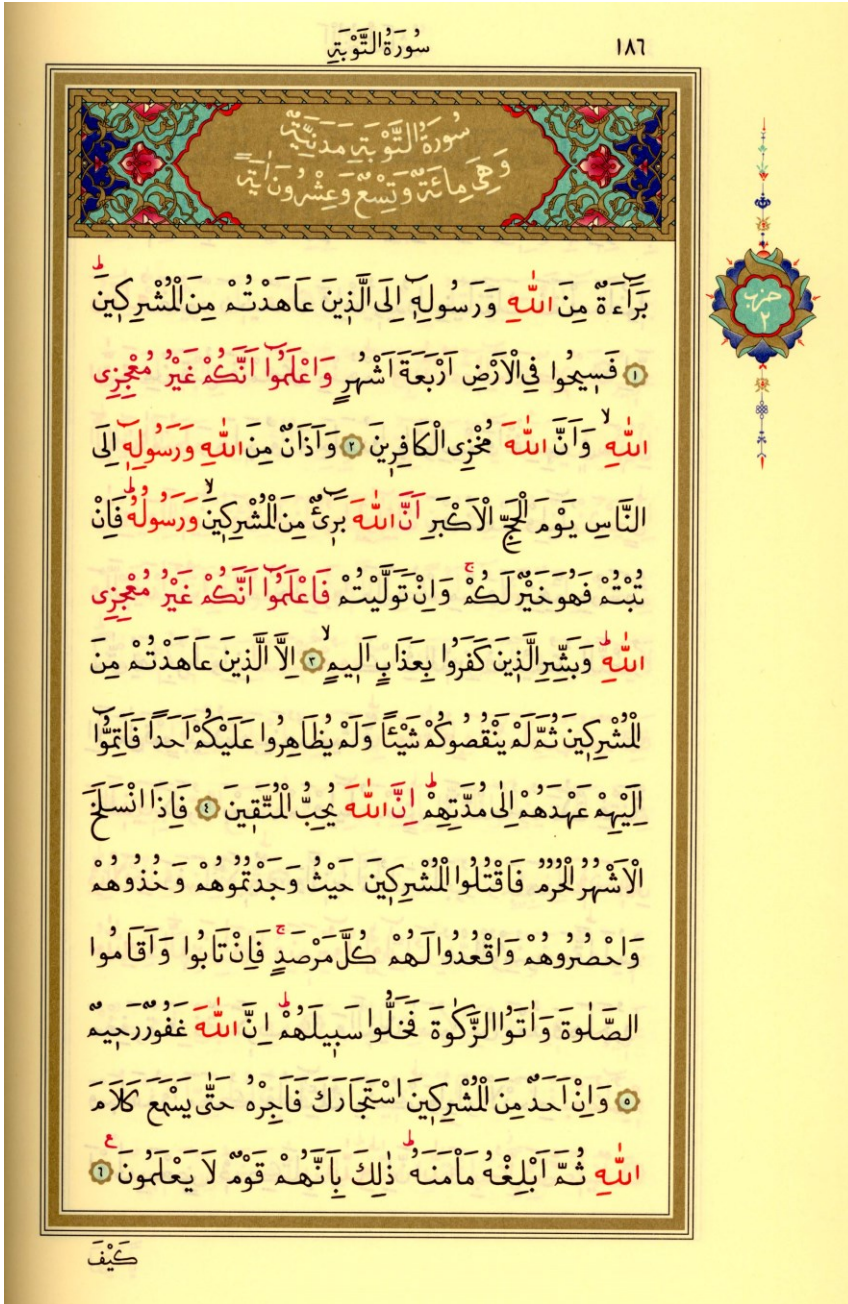 سُورَةُ التَّوْبَةِ ١٨٦
سُورَةُ التَّوْبَةِ مَدَنِيَّةٌ
وَهِيَ مِائَةٌ وَتِسْعٌ وَعِشْرُونَ اٰيَةً
حزب ٢
بَرَٓاءَةٌ مِنَ اللّٰهِ وَرَسُولِهٖٓ اِلَى الَّذ۪ينَ عَاهَدْتُمْ مِنَ الْمُشْرِك۪ينَۜ
﴿١﴾ فَس۪يحُوا فِي الْاَرْضِ اَرْبَعَةَ اَشْهُرٍ وَاعْلَمُٓوا اَنَّكُمْ غَيْرُ مُعْجِزِي
اللّٰهِۙ وَاَنَّ اللّٰهَ مُخْزِي الْكَافِر۪ينَ ﴿٢﴾ وَاَذَانٌ مِنَ اللّٰهِ وَرَسُولِهٖٓ اِلَى
النَّاسِ يَوْمَ الْحَجِّ الْاَكْبَرِ اَنَّ اللّٰهَ بَر۪ٓيءٌ مِنَ الْمُشْرِك۪ينَۙ وَرَسُولُهُۜ فَاِنْ
تُبْتُمْ فَهُوَ خَيْرٌ لَكُمْۚ وَاِنْ تَوَلَّيْتُمْ فَاعْلَمُٓوا اَنَّكُمْ غَيْرُ مُعْجِزِي
اللّٰهِۜ وَبَشِّرِ الَّذ۪ينَ كَفَرُوا بِعَذَابٍ اَل۪يمٍۙ ﴿٣﴾ اِلَّا الَّذ۪ينَ عَاهَدْتُمْ مِنَ
الْمُشْرِك۪ينَ ثُمَّ لَمْ يَنْقُصُوكُمْ شَيْـًٔا وَلَمْ يُظَاهِرُوا عَلَيْكُمْ اَحَدًا فَاَتِمُّٓوا
اِلَيْهِمْ عَهْدَهُمْ اِلٰى مُدَّتِهِمْۜ اِنَّ اللّٰهَ يُحِبُّ الْمُتَّق۪ينَ ﴿٤﴾ فَاِذَا انْسَلَخَ
الْاَشْهُرُ الْحُرُمُ فَاقْتُلُوا الْمُشْرِك۪ينَ حَيْثُ وَجَدْتُمُوهُمْ وَخُذُوهُمْ
وَاحْصُرُوهُمْ وَاقْعُدُوا لَهُمْ كُلَّ مَرْصَدٍۚ فَاِنْ تَابُوا وَاَقَامُوا
الصَّلٰوةَ وَاٰتَوُا الزَّكٰوةَ فَخَلُّوا سَب۪يلَهُمْۜ اِنَّ اللّٰهَ غَفُورٌ رَح۪يمٌ
﴿٥﴾ وَاِنْ اَحَدٌ مِنَ الْمُشْرِك۪ينَ اسْتَجَارَكَ فَاَجِرْهُ حَتّٰى يَسْمَعَ كَلَامَ
اللّٰهِ ثُمَّ اَبْلِغْهُ مَاْمَنَهُۜ ذٰلِكَ بِاَنَّهُمْ قَوْمٌ لَا يَعْلَمُونَ ع ﴿٦﴾
كَيْفَ